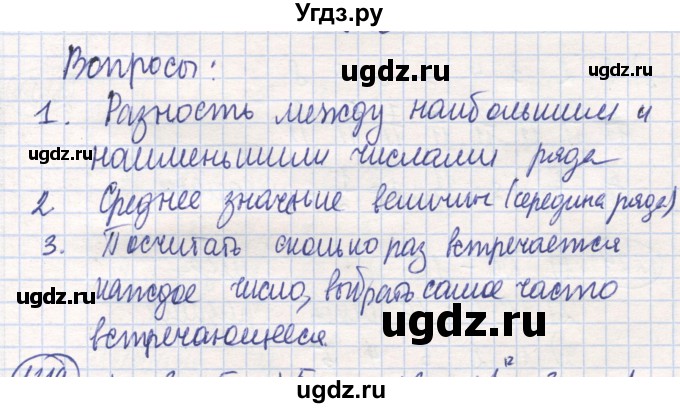 Угдз.ру
Вопросы:
ugdz.ru
1. Разность между наибольшим и
ugdz.ru
ugdz.ru
наименьшим числами ряда
2 Среднее значение величин (середина ряда)
3. Посчитать сколько раз встречается
ugdz.ru
каждое число, выбрать самое часто
ugdz.ru
встречающееся
ugdz.ru